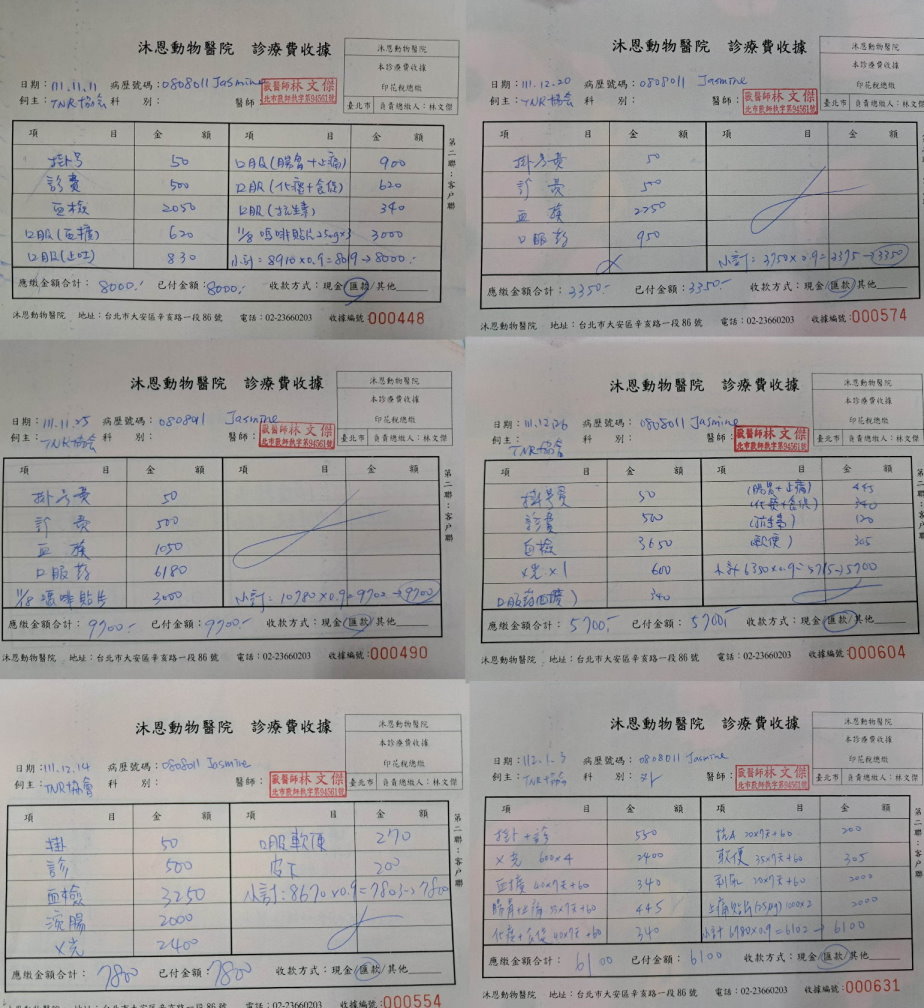 沐恩動物醫院 診療費收據
沐恩動物醫院
本診療費收據
印花稅總繳
臺北市 負責總繳人：林文傑
日期：111.11.11 病歷號碼：0808011 Jasmine
飼主：TNR協會 科 別： 醫師：獸醫師林文傑 北市獸師執字第94561號
項 目 金 額 項 目 金 額
掛号 50 口服(腸胃+止痛) 900
診費 500 口服(化痰+食促) 620
血檢 2050 口服(抗生素) 340
口服(血壓) 620 11/8 嗎啡貼片25ug×3 3000
口服(止吐) 830 小計=8910×0.9=8019→8000.-
應繳金額合計：8000.- 已付金額：8000.- 收款方式：現金/匯款/其他
第二聯：客戶聯
沐恩動物醫院 地址：台北市大安區辛亥路一段86號 電話：02-23660203 收據編號：000448
沐恩動物醫院 診療費收據
沐恩動物醫院
本診療費收據
印花稅總繳
臺北市 負責總繳人：林文傑
日期：111.12.20 病歷號碼：0808011 Jasmine
飼主：TNR協會 科 別： 醫師：獸醫師林文傑 北市獸師執字第94561號
項 目 金 額 項 目 金 額
掛号費 50
診費 500
血檢 2250
口服葯 950
小計=3750×0.9=3375→3350
應繳金額合計：3350.- 已付金額：3350.- 收款方式：現金/匯款/其他
沐恩動物醫院 地址：台北市大安區辛亥路一段86號 電話：02-23660203 收據編號：000574
沐恩動物醫院 診療費收據
沐恩動物醫院
本診療費收據
印花稅總繳
臺北市 負責總繳人：林文傑
日期：111.11.25 病歷號碼：0808011 Jasmine
飼主：TNR協會 科 別： 醫師：獸醫師林文傑 北市獸師執字第94561號
項 目 金 額 項 目 金 額
掛号費 50
診費 500
血檢 1050
口服葯 6180
11/8 嗎啡貼片 3000 小計=10780×0.9=9702→9700
應繳金額合計：9700.- 已付金額：9700.- 收款方式：現金/匯款/其他
第二聯：客戶聯
沐恩動物醫院 地址：台北市大安區辛亥路一段86號 電話：02-23660203 收據編號：000490
沐恩動物醫院 診療費收據
沐恩動物醫院
本診療費收據
印花稅總繳
臺北市 負責總繳人：林文傑
日期：111.12.26 病歷號碼：0808011 Jasmine
飼主：TNR協會 科 別： 醫師：獸醫師林文傑 北市獸師執字第94561號
項 目 金 額 項 目 金 額
掛号費 50 (腸胃+止痛) 445
(化痰+食促) 340
診費 500 (抗生素) 120
血檢 3650 (軟便) 305
X光×1 600 小計6350×0.9=5715→5700
口服葯(血壓) 340
應繳金額合計：5700.- 已付金額：5700.- 收款方式：現金/匯款/其他
第二聯：客戶聯
沐恩動物醫院 地址：台北市大安區辛亥路一段86號 電話：02-23660203 收據編號：000604
沐恩動物醫院 診療費收據
沐恩動物醫院
本診療費收據
印花稅總繳
臺北市 負責總繳人：林文傑
日期：111.12.14 病歷號碼：0808011 Jasmine
飼主：TNR協會 科 別： 醫師：獸醫師林文傑 北市獸師執字第94561號
項 目 金 額 項 目 金 額
掛 50 口服軟便 270
診 500 皮下 200
血檢 3250 小計=8670×0.9=7803→7800
浣腸 2000
X光 2400
應繳金額合計：7800 已付金額：7800 收款方式：現金/匯款/其他
第二聯：客戶聯
沐恩動物醫院 地址：台北市大安區辛亥路一段86號 電話：02-23660203 收據編號：000554
沐恩動物醫院 診療費收據
沐恩動物醫院
本診療費收據
印花稅總繳
臺北市 負責總繳人：林文傑
日期：112.1.3 病歷號碼：0808011 Jasmine
飼主：TNR協會 科 別： 醫師：獸醫師林文傑 北市獸師執字第94561號
項 目 金 額 項 目 金 額
掛+診 550 抗A 20×7天+60 200
X光 600×4 2400 軟便 35×7天+60 305
血壓 40×7天+60 340 20×7天+60 2000
腸胃+止痛 55×7天+60 445 止痛貼片(25μg)1000×2 2000
化痰+食促 40×7天+60 340 小計6780×0.9=6102→6100
應繳金額合計：6100 已付金額：6100 收款方式：現金/匯款/其他
第二聯：客戶聯
沐恩動物醫院 地址：台北市大安區辛亥路一段86號 電話：02-23660203 收據編號：000631